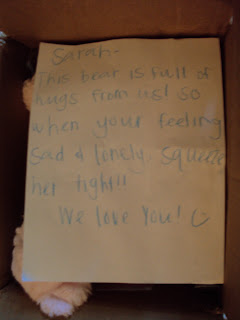 Sarah-
This bear is full of
hugs from us! so
when your feeling
sad & lonely, squeeze
her tight!!
We love You! :)